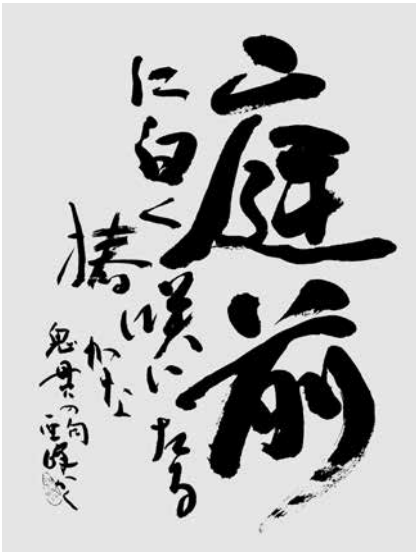 庭前
に白く
咲いたる
椿
かな
鬼貫の句
峰かく